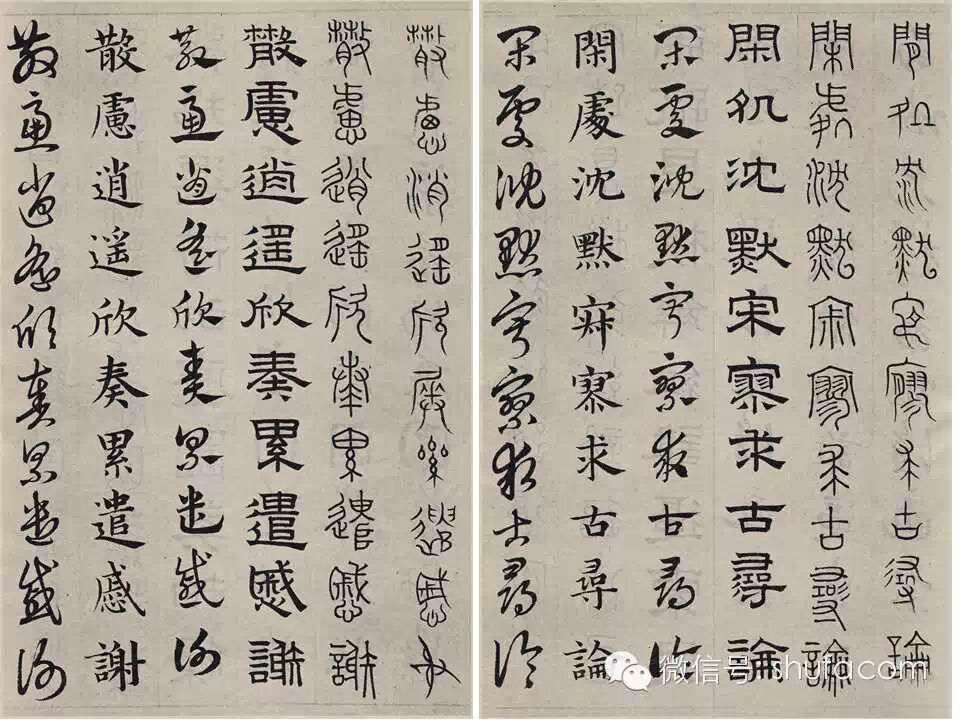 閒処沈默寂寥求古尋論
閑處沈默寂寥求古尋論
閑処沈默寂寥求古尋論
閑處沈默寂寥求古尋論
閑處沈默寂寥求古尋論
閑處沈默寂寥求古尋論
散慮逍遙欣奏累遣慼謝
散慮逍遙欣奏累遣慼謝
散慮逍遙欣奏累遣慼謝
散慮逍遙欣奏累遣慼謝
散慮逍遙欣奏累遣慼謝
散慮逍遙欣奏累遣慼謝
微信号: shufacom